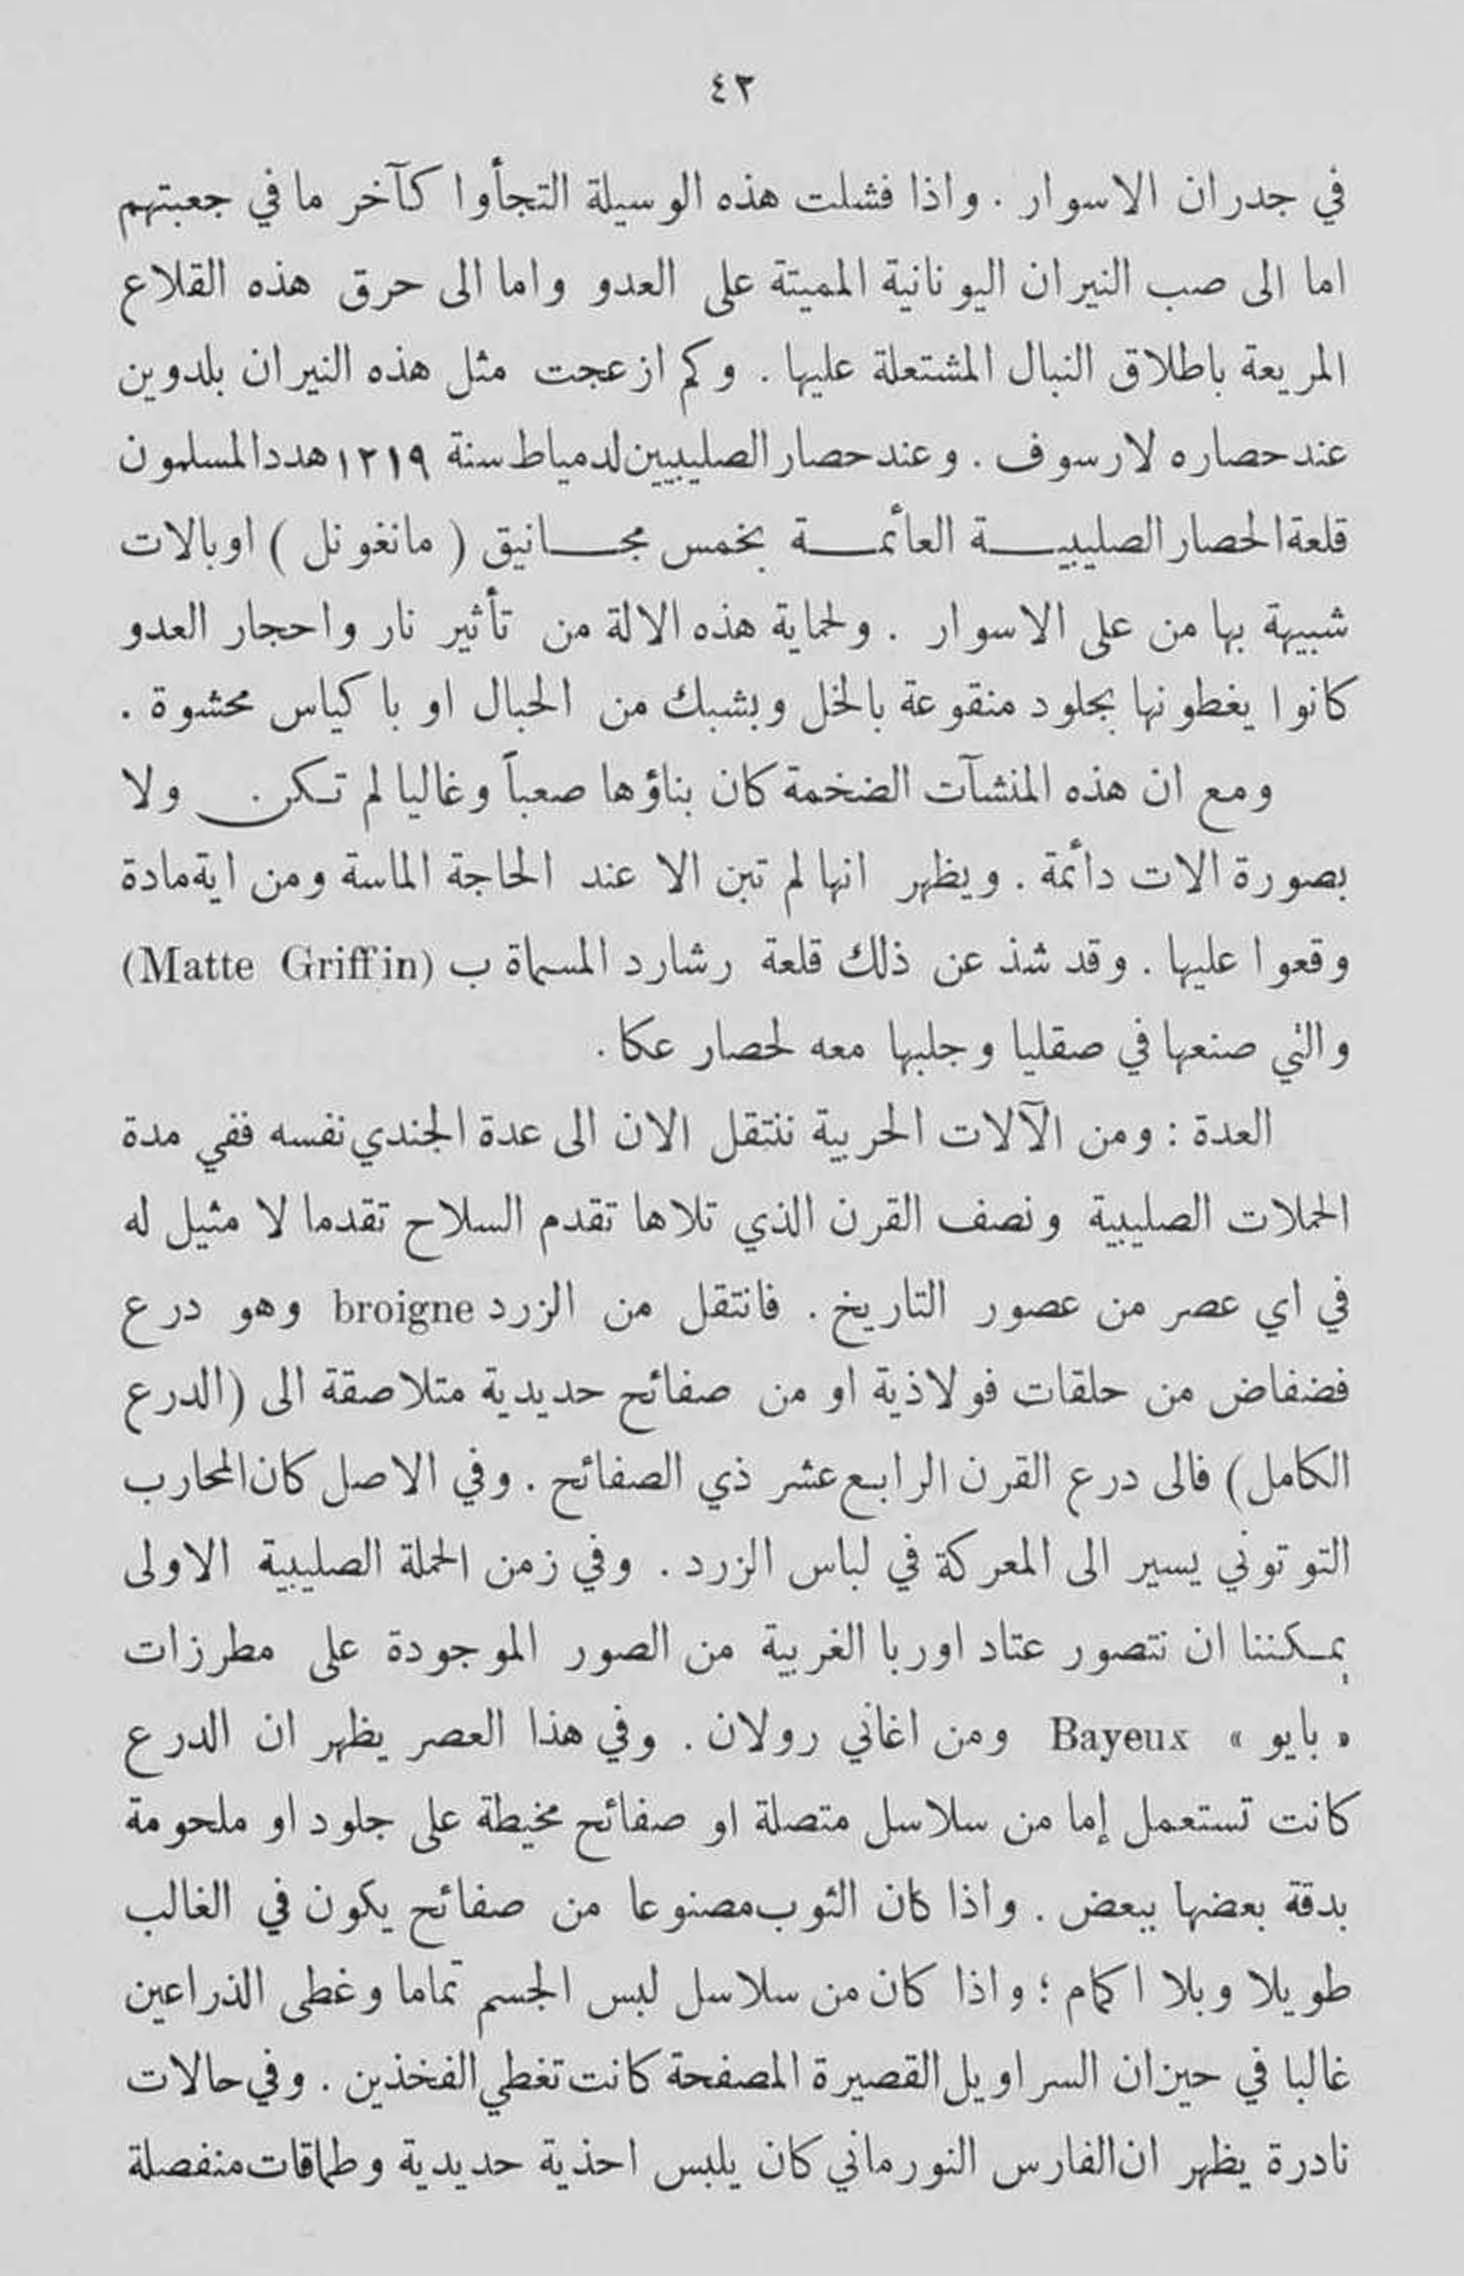 ٤٣
في جدران الاسوار . واذا فشلت هذه الوسيلة التجأوا كآخر ما في جعبتهم
اما الى صب النيران اليونانية المميتة على العدو واما الى حرق هذه القلاع
المريعة باطلاق النبال المشتعلة عليها . وكم ازعجت مثل هذه النيران بلدوين
عند حصاره لارسوف . وعند حصار الصليبيين لدمياط سنة ١٢١٩ هدد المسلمون
قلعة الحصار الصليبيــة العائمــة بخمس مجــانيق ( مانغونل ) او بالات
شبيهة بها من على الاسوار . ولحماية هذه الالة من تأثير نار واحجار العدو
كانوا يغطونها بجلود منقوعة بالخل وبشبك من الحبال او باكياس محشوة .
ومع ان هذه المنشآت الضخمة كان بناؤها صعباً وغاليا لم تـكن ولا
بصورة الات دائمة . ويظهر انها لم تبن الا عند الحاجة الماسة ومن اية مادة
وقعوا عليها . وقد شذ عن ذلك قلعة رشارد المسماة ب (Matte Griffin)
والتي صنعها في صقليا وجلبها معه لحصار عكا .
العدة : ومن الآلات الحربية ننتقل الان الى عدة الجندي نفسه ففي مدة
الحملات الصليبية ونصف القرن الذي تلاها تقدم السلاح تقدما لا مثيل له
في اي عصر من عصور التاريخ . فانتقل من الزرد broigne وهو درع
فضفاض من حلقات فولاذية او من صفائح حديدية متلاصقة الى (الدرع
الكامل) فالى درع القرن الرابع عشر ذي الصفائح . وفي الاصل كان المحارب
التوتوني يسير الى المعركة في لباس الزرد . وفي زمن الحملة الصليبية الاولى
يمـكننا ان نتصور عتاد اوربا الغربية من الصور الموجودة على مطرزات
« بايو » Bayeux ومن اغاني رولان . وفي هذا العصر يظهر ان الدرع
كانت تستعمل إما من سلاسل متصلة او صفائح مخيطة على جلود او ملحومة
بدقة بعضها ببعض . واذا كان الثوب مصنوعا من صفائح يكون في الغالب
طويلا وبلا اكمام ؛ واذا كان من سلاسل لبس الجسم تماما وغطى الذراعين
غالبا في حين ان السراويل القصيرة المصفحة كانت تغطي الفخذين . وفي حالات
نادرة يظهر ان الفارس النورماني كان يلبس احذية حديدية وطماقات منفصلة